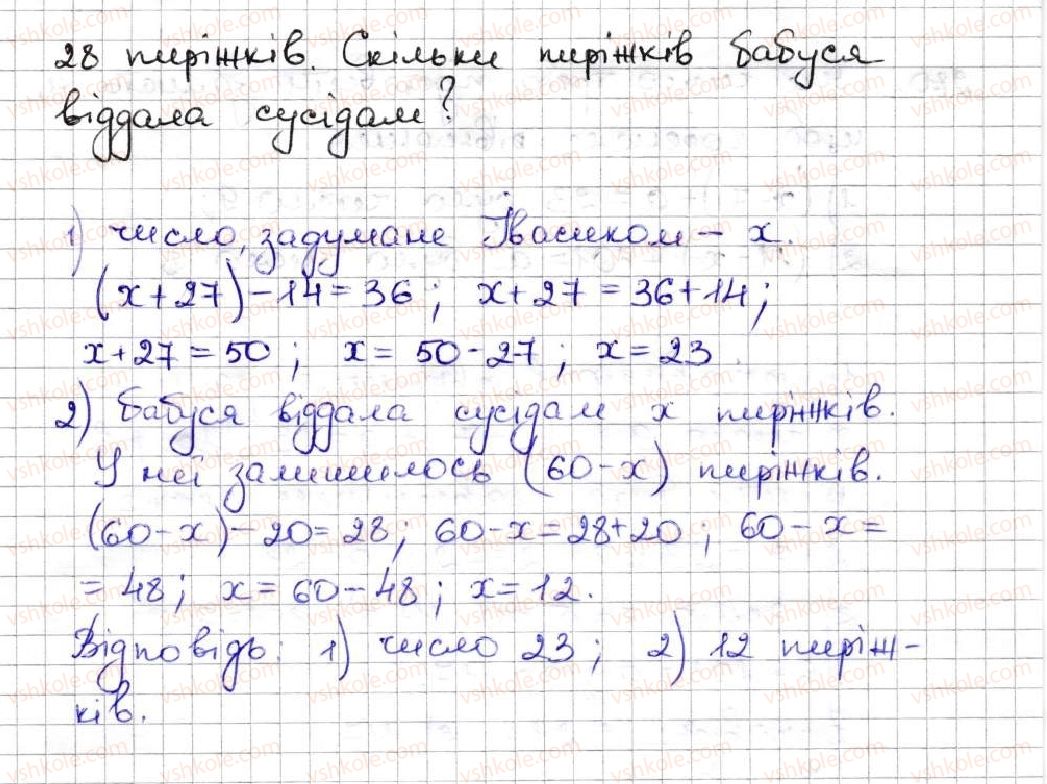 28 пиріжків. Скільки пиріжків бабуся
віддала сусідам?
1) число, задумане Івасиком – x.
(x+27)-14=36; x+27=36+14;
x+27=50; x=50-27; x=23.
2) Бабуся віддала сусідам x пиріжків.
У неї залишилось (60-x) пиріжків.
(60-x)-20=28; 60-x=28+20; 60-x=
=48; x=60-48; x=12.
Відповідь: 1) число 23; 2) 12 пиріж-
ків.